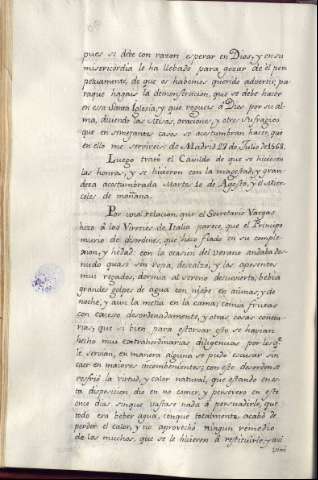 pues se debe con razon esperar en Dios, y en su
misericordia le ha llebado para gozar de él per
petuamente, de que os habemos querido advertir, pa
raque hagais la demonstracion, que se debe hacer
en esa Santa Iglesia, y que rogueis á Dios por su al-
ma, diciendo las Misas, oraciones, y otros sufragios
que en semejantes casos se acostumbran hacer, que
en ello me servireis de Madrid 27 de Julio de 1568.
Luego trató el Cavildo de que se hiciesen
las honras, y se hicieron con la magestad, y gran-
deza acostumbrada Martes 10 de Agosto, y el Mier-
coles de mañana.
Por una relacion, que el Secretario Vargas
hizo á los Virreies de Italia parece, que el Principe
murio de desordenes, que hizo fiado en su comple-
xion, y hedad con la ocasion del verano andaba des-
nudo quasi sin ropa, descalzo, y las aposentos
mui regados, dormia al sereno descubierto, bebia
grandes golpes de agua con nieve en aiunas, y de
noche, y aun la metia en la cama; comia frutas
con exceso desordenadamente, y otras cosas contra-
rias; que si bien para estorvar esto se havian
hecho mui extrahordinarias diligencias por los qe.
le servian, en manera alguna se pudo escusar sin
caer en maiores inconvenientes; con este desorden se
resfrió la virtud, y calor natural, que estando en es-
ta disposicion dio en no comer, y persevero en esto
once dias sinque vastase nada á persuadirle, que
todo era beber agua, conque totalmente acabó de
perder el calor, y no aprovechó ningun remedio
de los muchos, que se le hicieron á restituirle, y asi